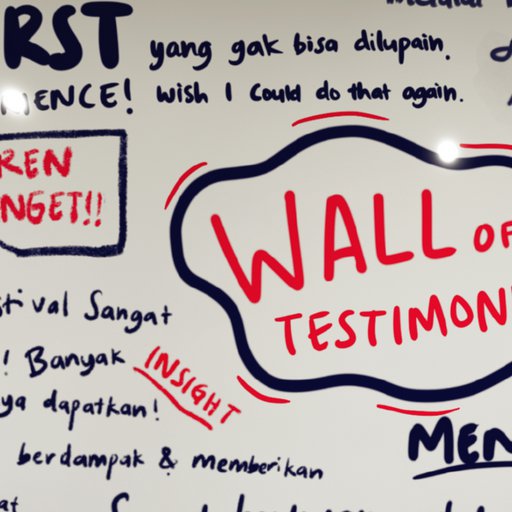 RST yang gak bisa dilupain.
IENCE! wish I could do that again.
REN
NGET!!
WALL OF
TESTIMON
tival Sangat
! Banyak INSIGHT
ya dapatkan!
MEN
berdampak & memberikan
at